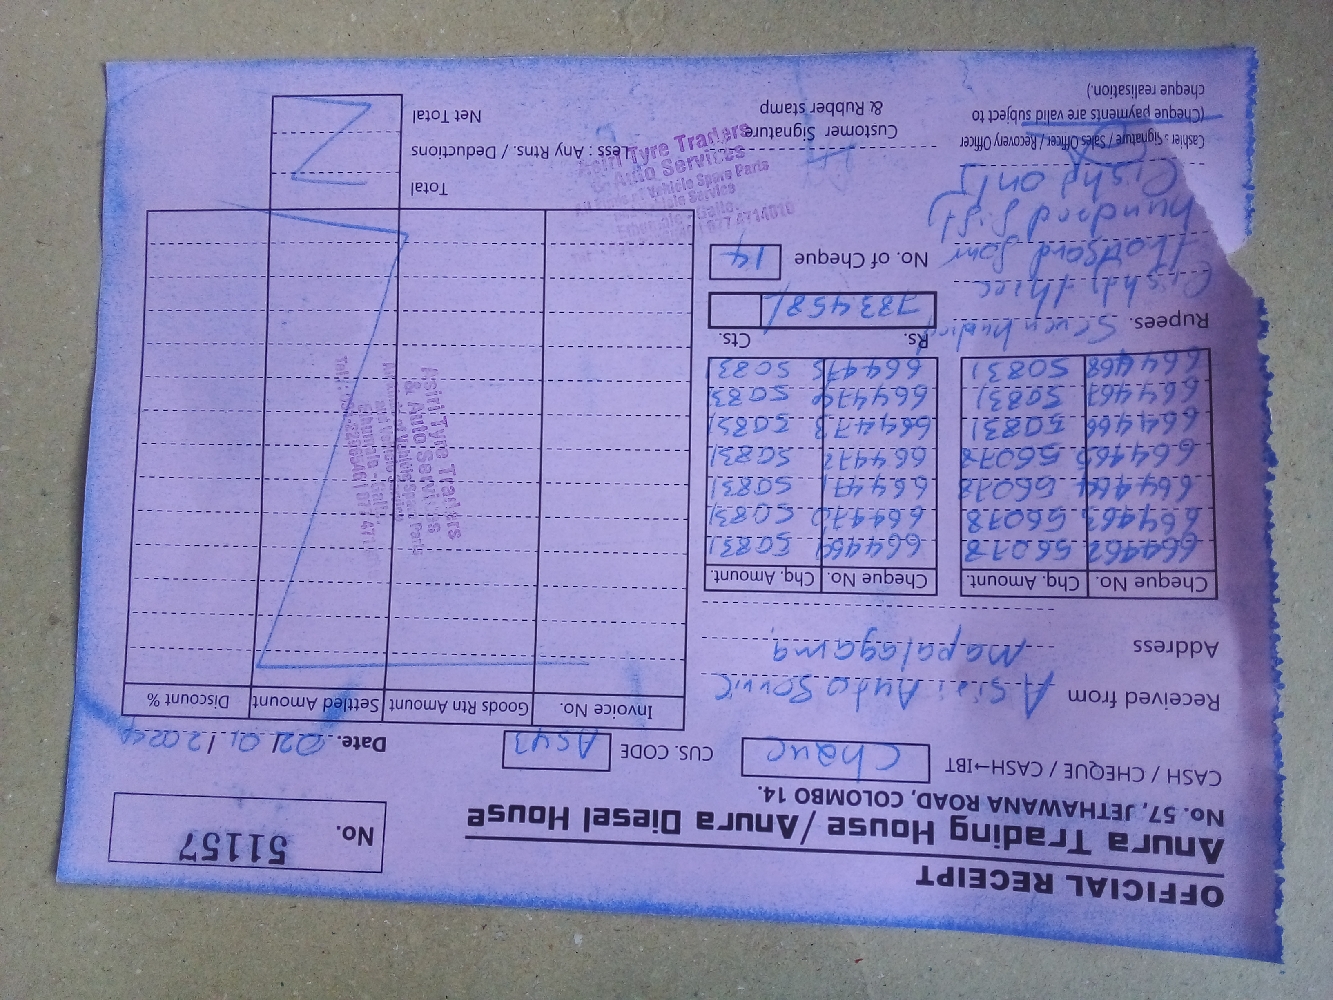 OFFICIAL RECEIPT
Anura Trading House / Anura Diesel House
No. 57, JETHAWANA ROAD, COLOMBO 14.
No. 51157
CASH / CHEQUE / CASH→IBT Chque
CUS. CODE AS43
Date. 2021.01.12
Received from Asiri Auto Servic
Address Mapalagama
Cheque No. Chq. Amount. Cheque No. Chq. Amount.
664462 56078 664469 50831
664463 56078 664470 50831
664464 56078 664471 50831
664465 56078 664472 50831
664466 50831 664473 50831
664467 50831 664474 50831
664468 50831 664475 50831
Rs. Cts.
783458/
No. of Cheque 14
Rupees. Seven hundred
Eighty three
thousand four
hundred fifty
Eight only
Cashier's Signature / Sales Officer / Recovery Officer
(Cheque payments are valid subject to
cheque realisation.)
Customer Signature
& Rubber stamp
Invoice No. Goods Rtn Amount Settled Amount Discount %
Total
Less : Any Rtns. / Deductions
Net Total
Asiri Tyre Traders
& Auto Services
All Kinds of Vehicle Spare Parts
077 4714010
Asiri Tyre Traders
& Auto Services